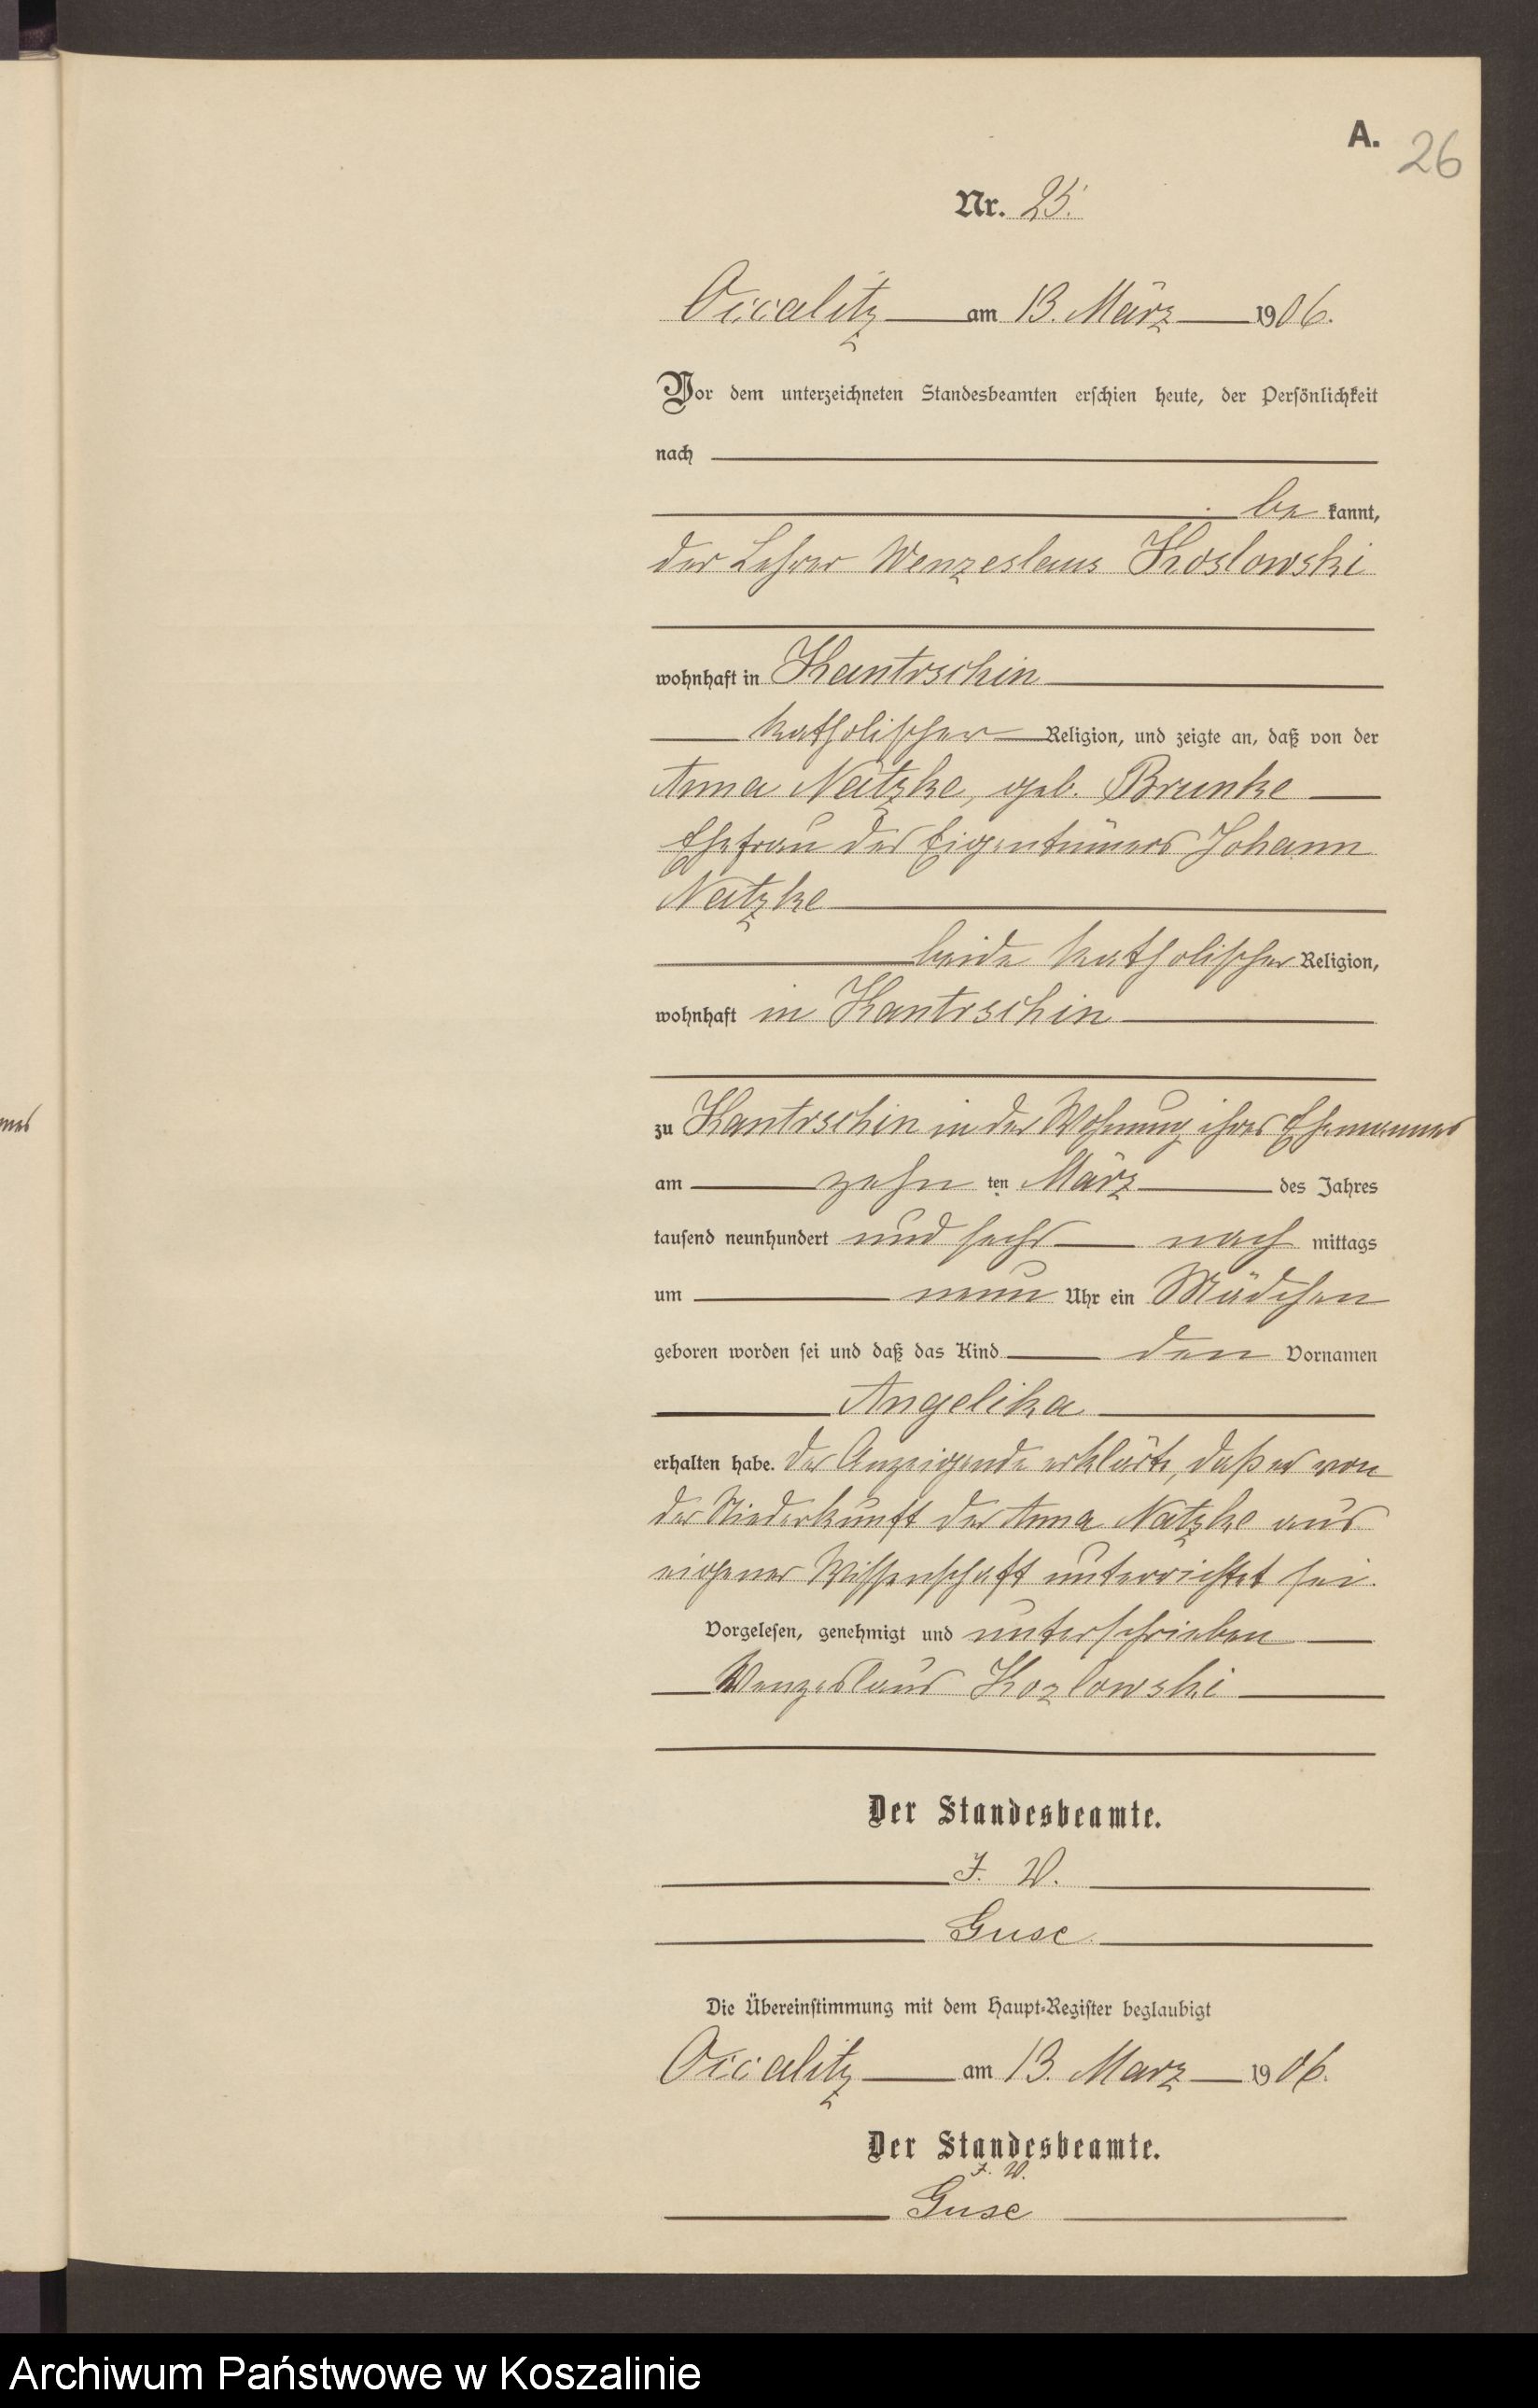 A.
26
Nr. 25.
Occalitz am 13. März 1906.
Vor dem unterzeichneten Standesbeamten erschien heute, der Persönlichkeit
nach
be kannt,
der Lehrer Wenzeslaus Koslowski
wohnhaft in Kantrschin
katholischer Religion, und zeigte an, daß von der
Anna Natzke, geb. Brunke
Ehefrau des Eigentümers Johann
Natzke
beide katholischer Religion,
wohnhaft in Kantrschin
zu Kantrschin in der Wohnung ihres Ehemannes
am zehn ten März des Jahres
tausend neunhundert und sechs nach mittags
um neun Uhr ein Mädchen
geboren worden sei und daß das Kind den Vornamen
Angelika
erhalten habe. Der Anzeigende erklärte, daß er von
der Niederkunft der Anna Natzke aus
eigener Wissenschaft unterrichtet sei.
Vorgelesen, genehmigt und unterschrieben
Wenzeslaus Kozlowski
Der Standesbeamte.
J. V.
Guse
Die Übereinstimmung mit dem Haupt-Register beglaubigt
Occalitz am 13. März 1906.
Der Standesbeamte.
J. V.
Guse
Archiwum Państwowe w Koszalinie